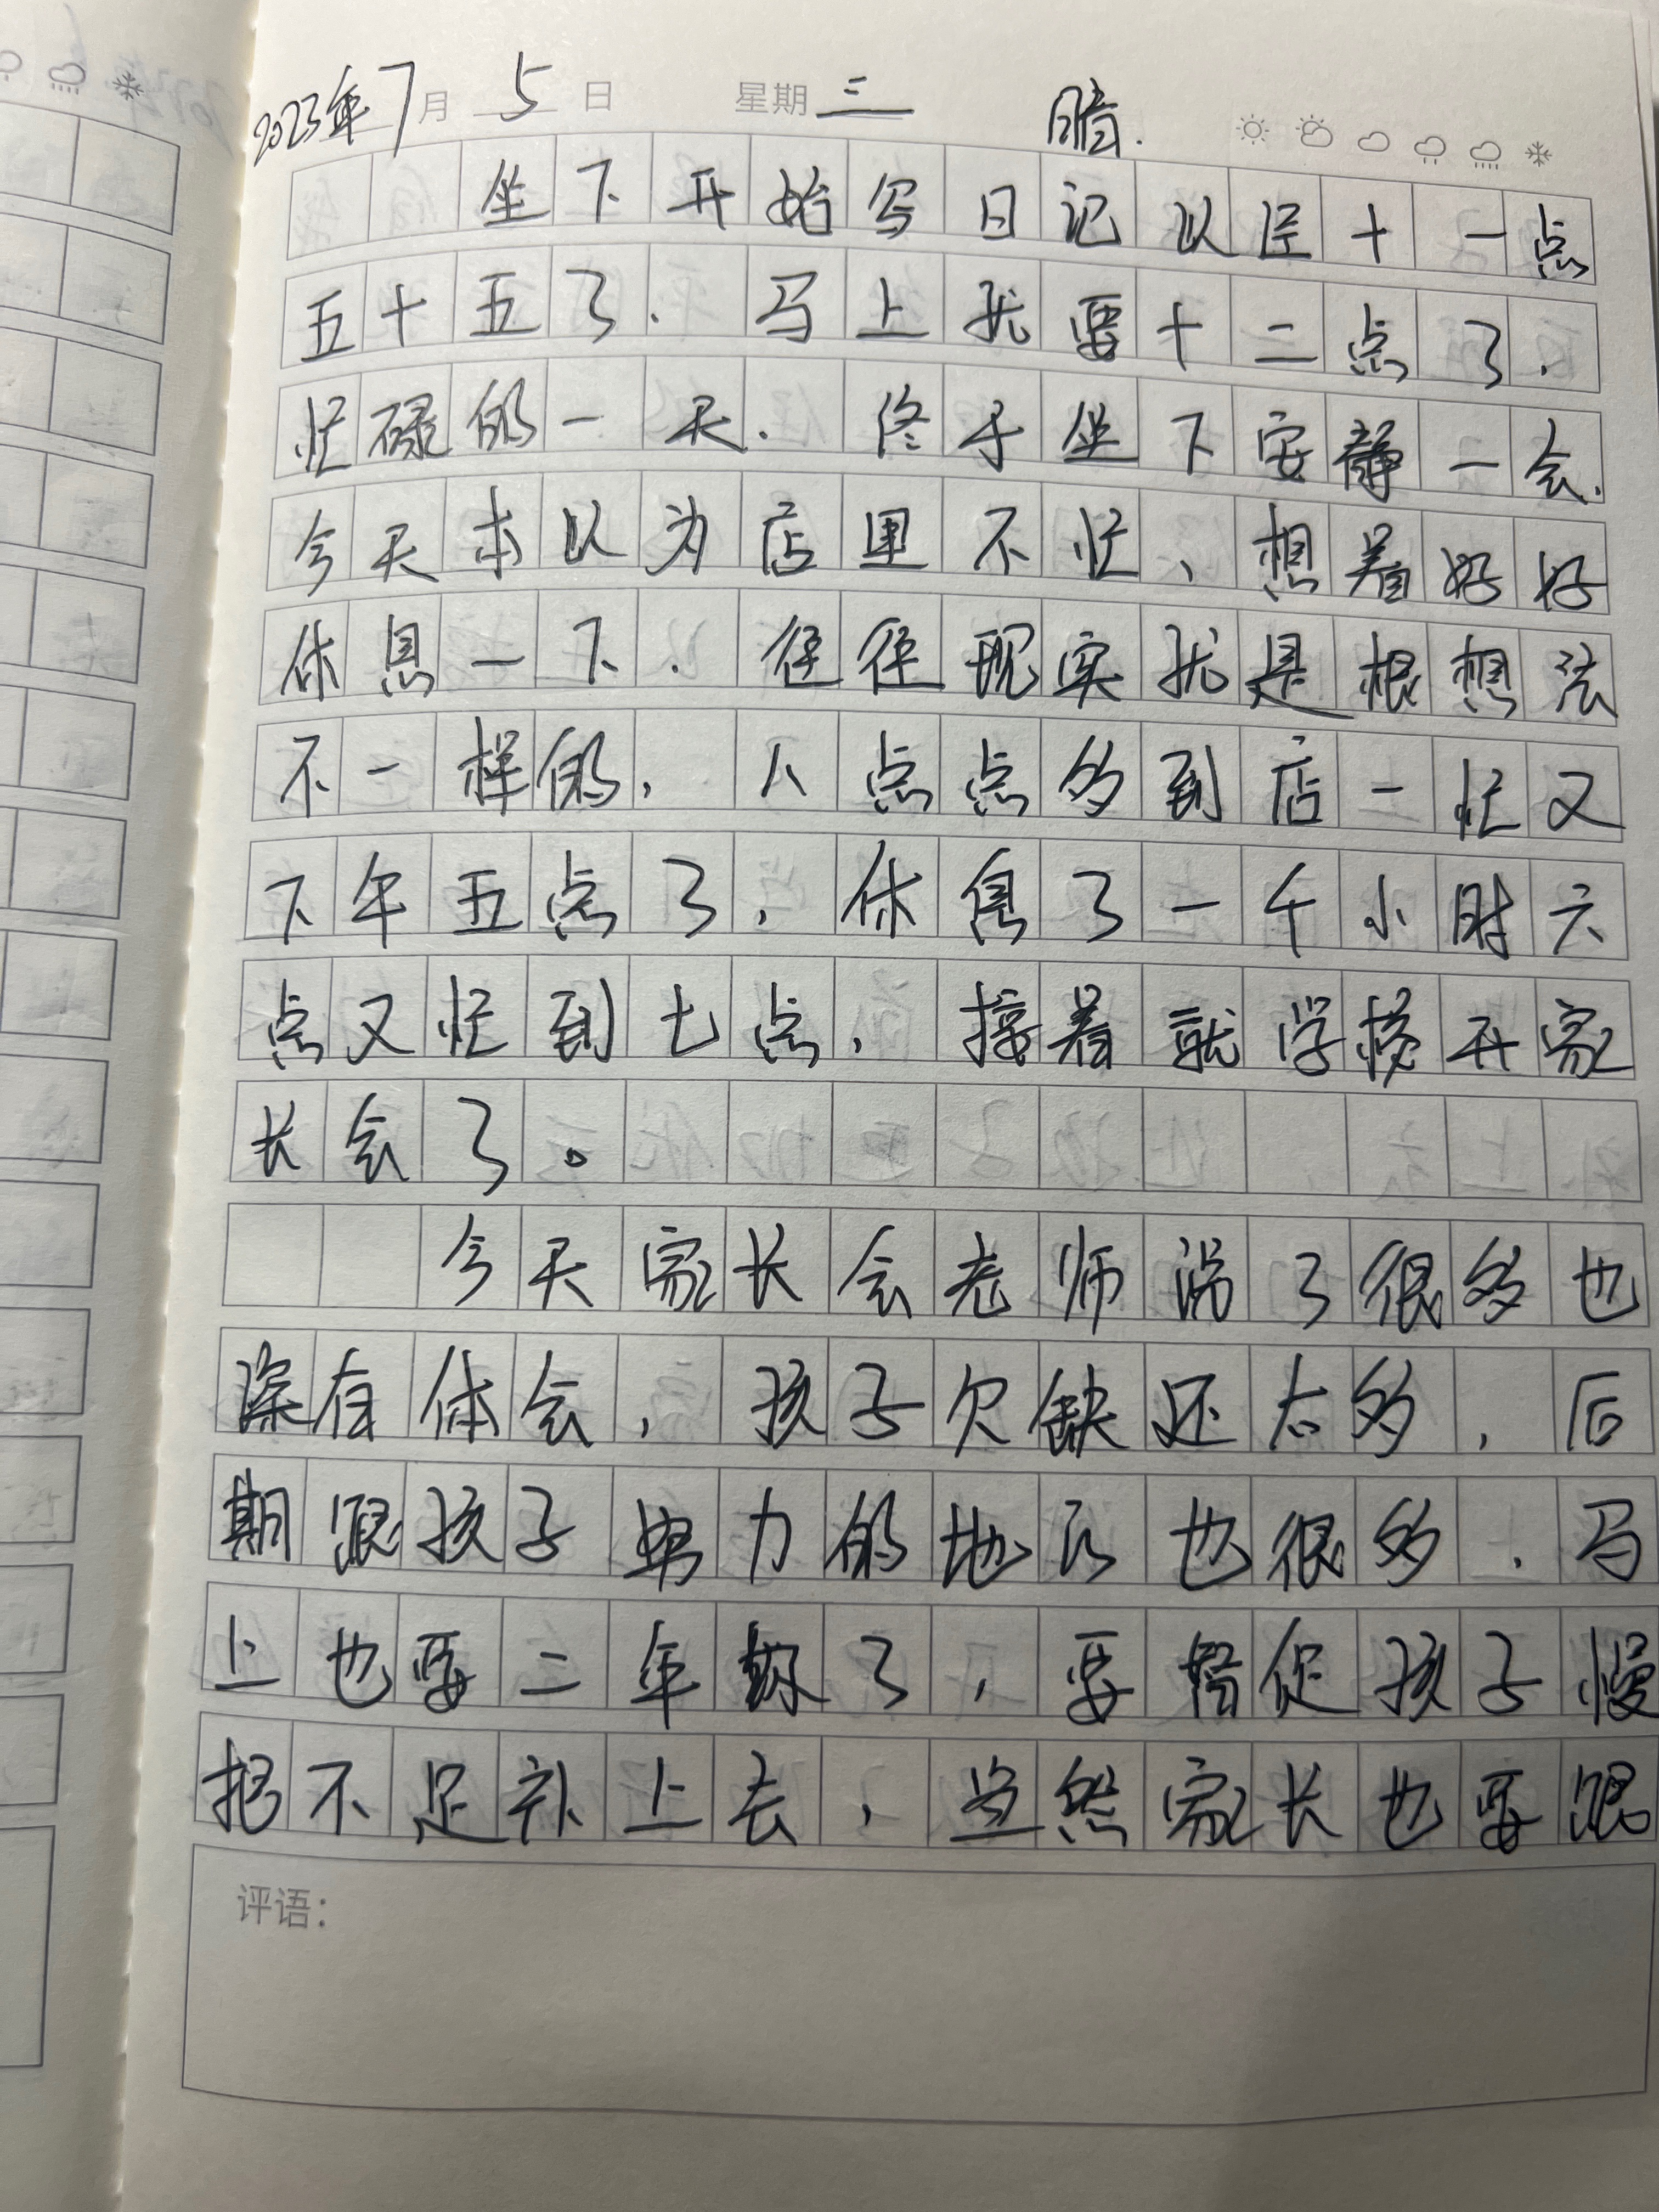 2023年7月5日 星期三 暗.
坐下开始写日记以经十一点
五十五了. 马上扰要十二点了.
忙碌的一天. 终于坐下安静一会.
今天本以为店里不忙、想着好好
休息一下. 往往现实扰是根想法
不一样的, 八点点多到店一忙又
下午五点了, 休息了一个小时六
点又忙到七点, 接着就学校开家
长会了。
今天家长会老师说了很多也
深有体会, 孩子欠缺还太多, 后
期跟孩子努力的地方也很多. 马
上也要二年级了, 要督促孩子慢
把不足补上去, 当然家长也要跟
评语: